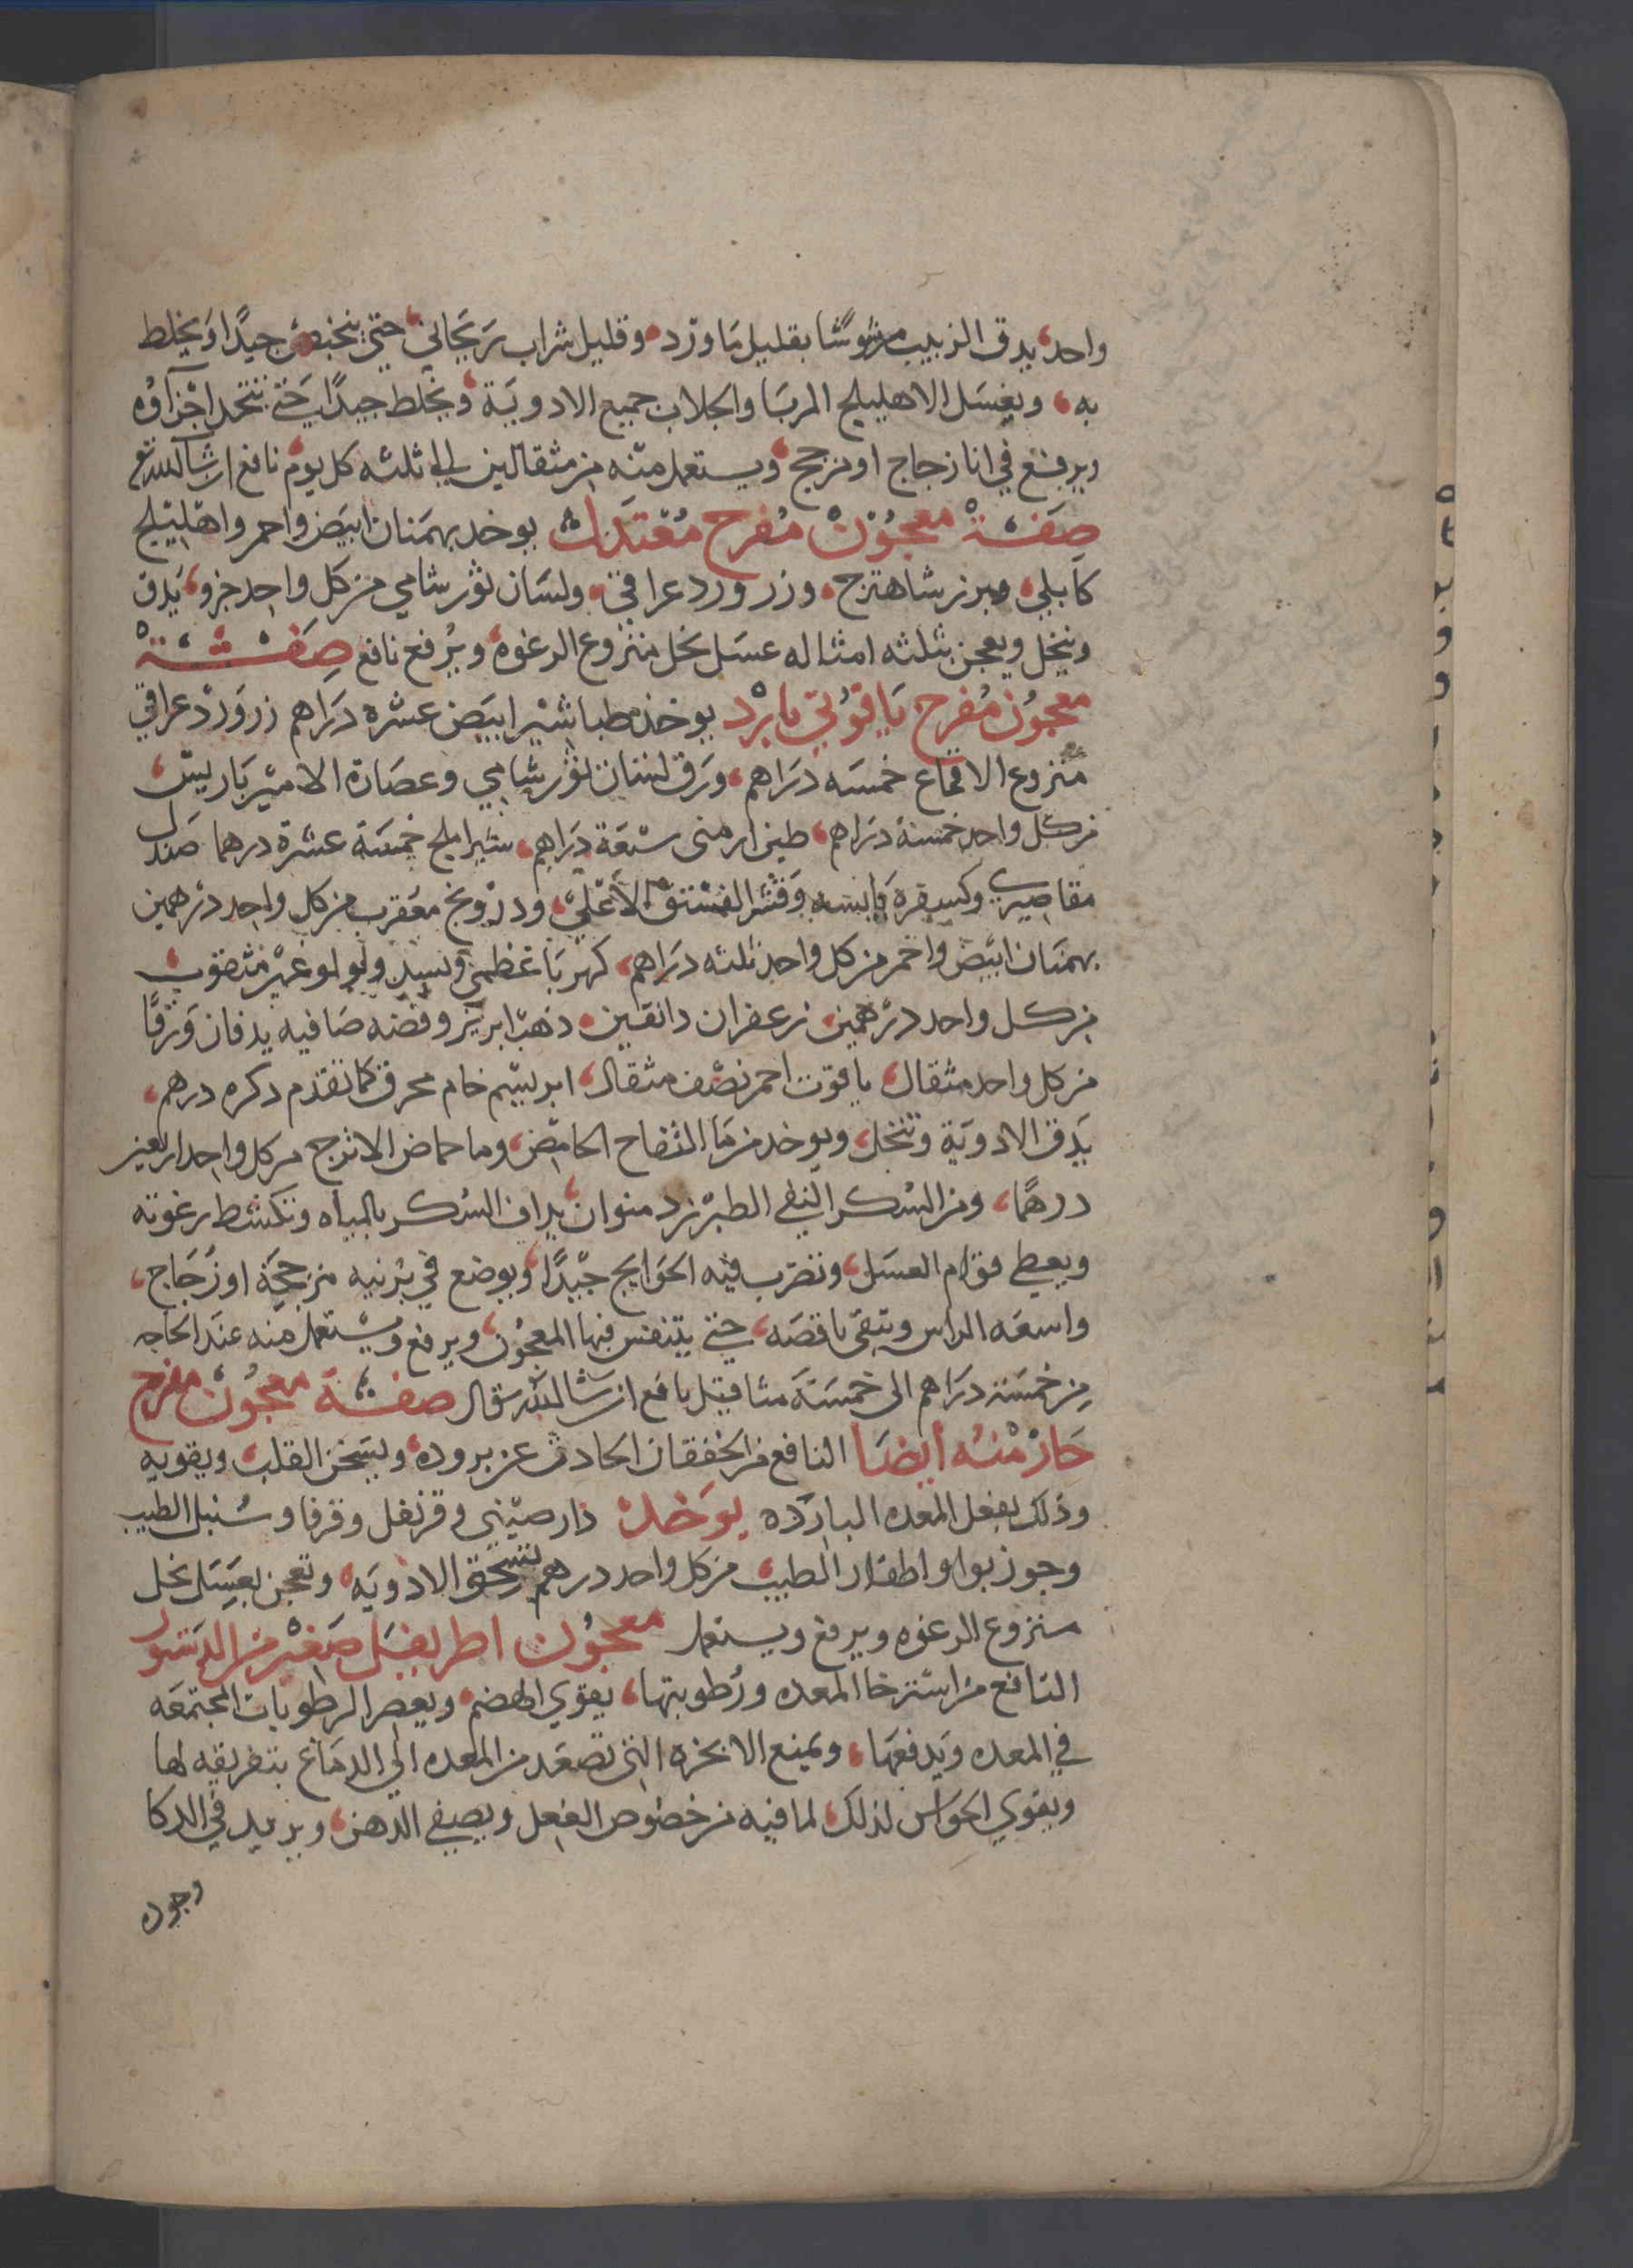 واحد، يدق الزبيب مرشوشا بقليل ماورد، وقليل شراب ريحاني، حتى جيدا ويخلط
به، ويغسل الاهليلج المربا والجلاب جميع الادوية، ويخلط جيدا حتى تتحد اجزآؤه
ويرفع في انا زجاج او مزجج، ويستعمل منه من مثقالين الى ثلثه كل يوم نافع ان شا الله تع
صفة معجون مفرح معتدل يوخد بهمنان ابيض واحمر واهليلج
كابلي، وبزر شاهترج، وزر ورد عراقي، ولسان ثور شامي من كل واحد جزو، يدق
وينخل ويعجن بثلثه امثاله عسل نحل منزوع الرغوه، ويرفع نافع صفة
معجون مفرح ياقوتي بارد يوخذ طباشير ابيض عشره دراهم زر ورد عراقي
منزوع الاقماع خمسه دراهم، ورق لسان ثور شامي وعصارة الامير باريس
من كل واحد خمسة دراهم، طين ارمني سبعة دراهم، شير املج خمسة عشرة درهما صندل
مقاصيري وكسفره يابسه وقشر الفستق الاعلي، ودرونج معقرب من كل واحد درهمين
بهمنان ابيض واحمر من كل واحد ثلثه دراهم، كهربا عظمي وبسد ولولو غير مثقوب
من كل واحد درهمين، زعفران دانقين، ذهب ابريز وفضه صافيه يدقان ورقا
من كل واحد مثقال، ياقوت احمر نصف مثقال، ابريسم خام محرق كما تقدم دكره درهم،
يدق الادوية وتنخل، ويوخد من ما التفاح الحامض، وما حماض الاترج من كل واحد اربعين
درهما، ومن السكر النقي الطبرزد منوان، يداف السكر بالمياه وتكشط رغوته
ويعطي قوام العسل، وتضرب فيه الحوايج جيدا، ويوضع في برنيه مزججة او زجاج،
واسعه الراس وتبقى ناقصه، حتى يتنفس فيها المعجون، ويرفع ويستعمل منه عند الحاجه
من خمسة دراهم الى خمسة مثاقيل نافع ان شا الله تعالى صفة معجون مفرح
حار منه أيضا النافع من الخفقان الحادث عن بروده، ويسخن القلب، ويقويه
وذلك يفعل المعده البارده يوخد دارصيني وقرنفل وقرفا وسنبل الطيب
وجوزبوا واظفار الطيب، من كل واحد درهم تسحق الادويه، وتعجن بعسل نحل
منزوع الرغوه ويرفع ويستعمل معجون اطريفل صغير من الدستور
النافع من استرخا المعده ورطوبتها، يقوي الهضم، ويعصر الرطوبات المجتمعه
في المعده ويدفعها، ويمنع الابخره التي تصعد من المعده الي الدماغ بتفريقه لها
ويقوي الحواس لذلك، لما فيه من خصوص الفعل ويصفي الدهن، ويزيد في الدكا
وجوده